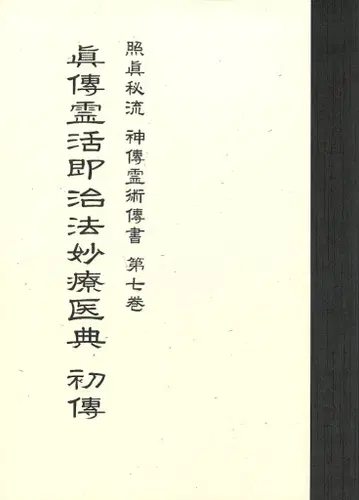 照眞秘流 神傳霊術傳書 第七巻
眞傳霊活即治法妙療医典 初傳